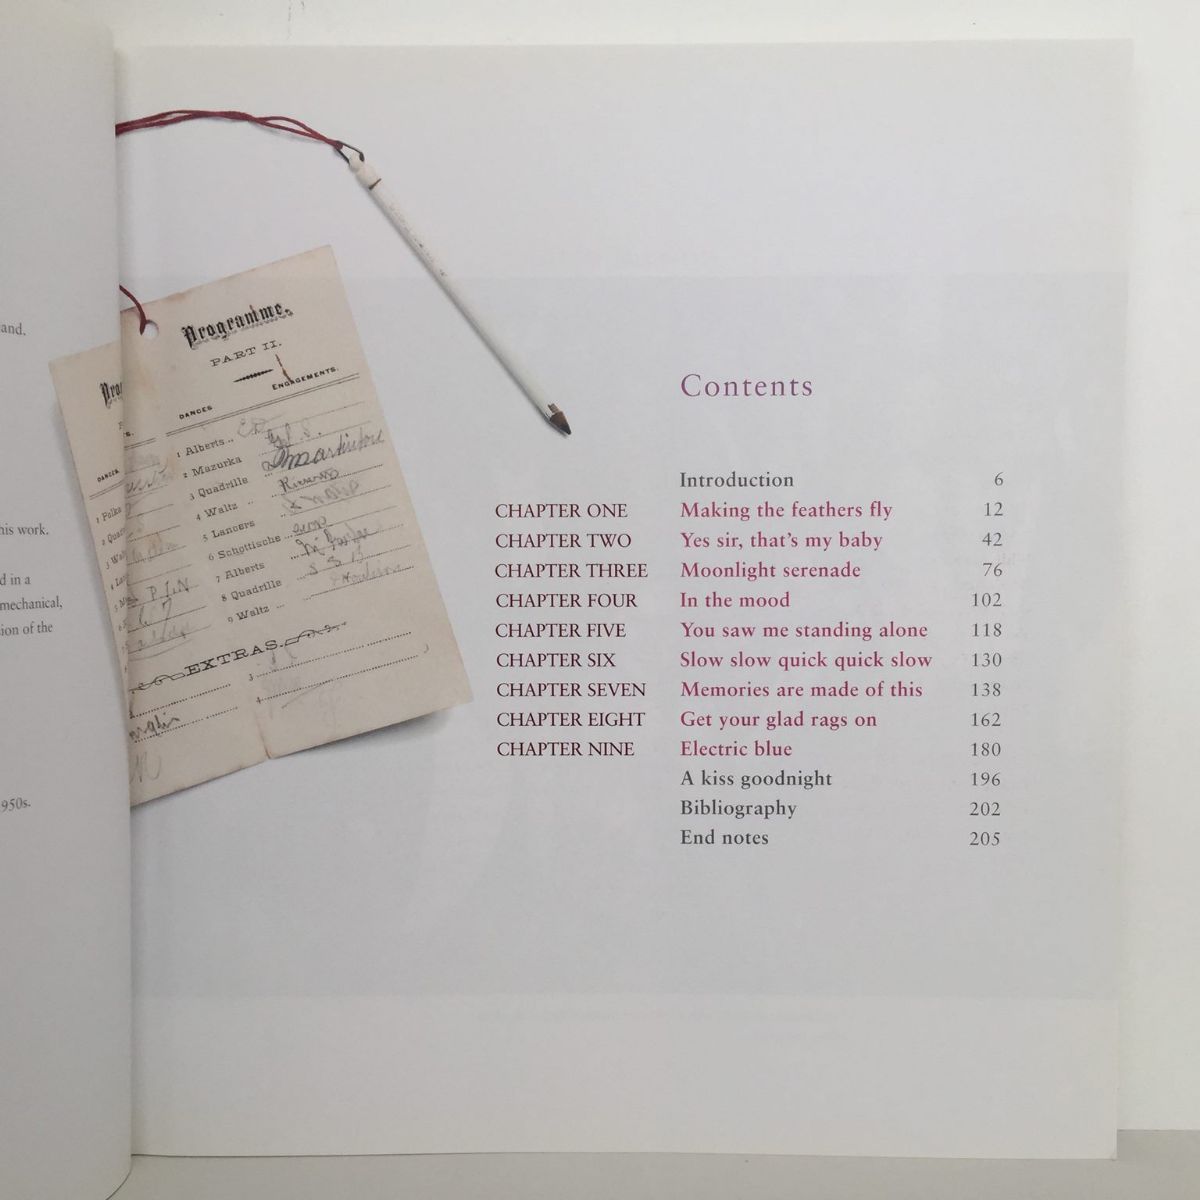 and.
his work.
d in a
mechanical,
ion of the
950s.
Programme.
PART II.
DANCES
ENGAGEMENTS.
1 Alberts..
2 Mazurka
3 Quadrille
4 Waltz ..
5 Lancers
6 Schottische ...
7 Alberts
8 Quadrille
9 Waltz ...
EXTRAS.
3
4
DANCES
1 Polka
Contents
Introduction 6
CHAPTER ONE Making the feathers fly 12
CHAPTER TWO Yes sir, that's my baby 42
CHAPTER THREE Moonlight serenade 76
CHAPTER FOUR In the mood 102
CHAPTER FIVE You saw me standing alone 118
CHAPTER SIX Slow slow quick quick slow 130
CHAPTER SEVEN Memories are made of this 138
CHAPTER EIGHT Get your glad rags on 162
CHAPTER NINE Electric blue 180
A kiss goodnight 196
Bibliography 202
End notes 205